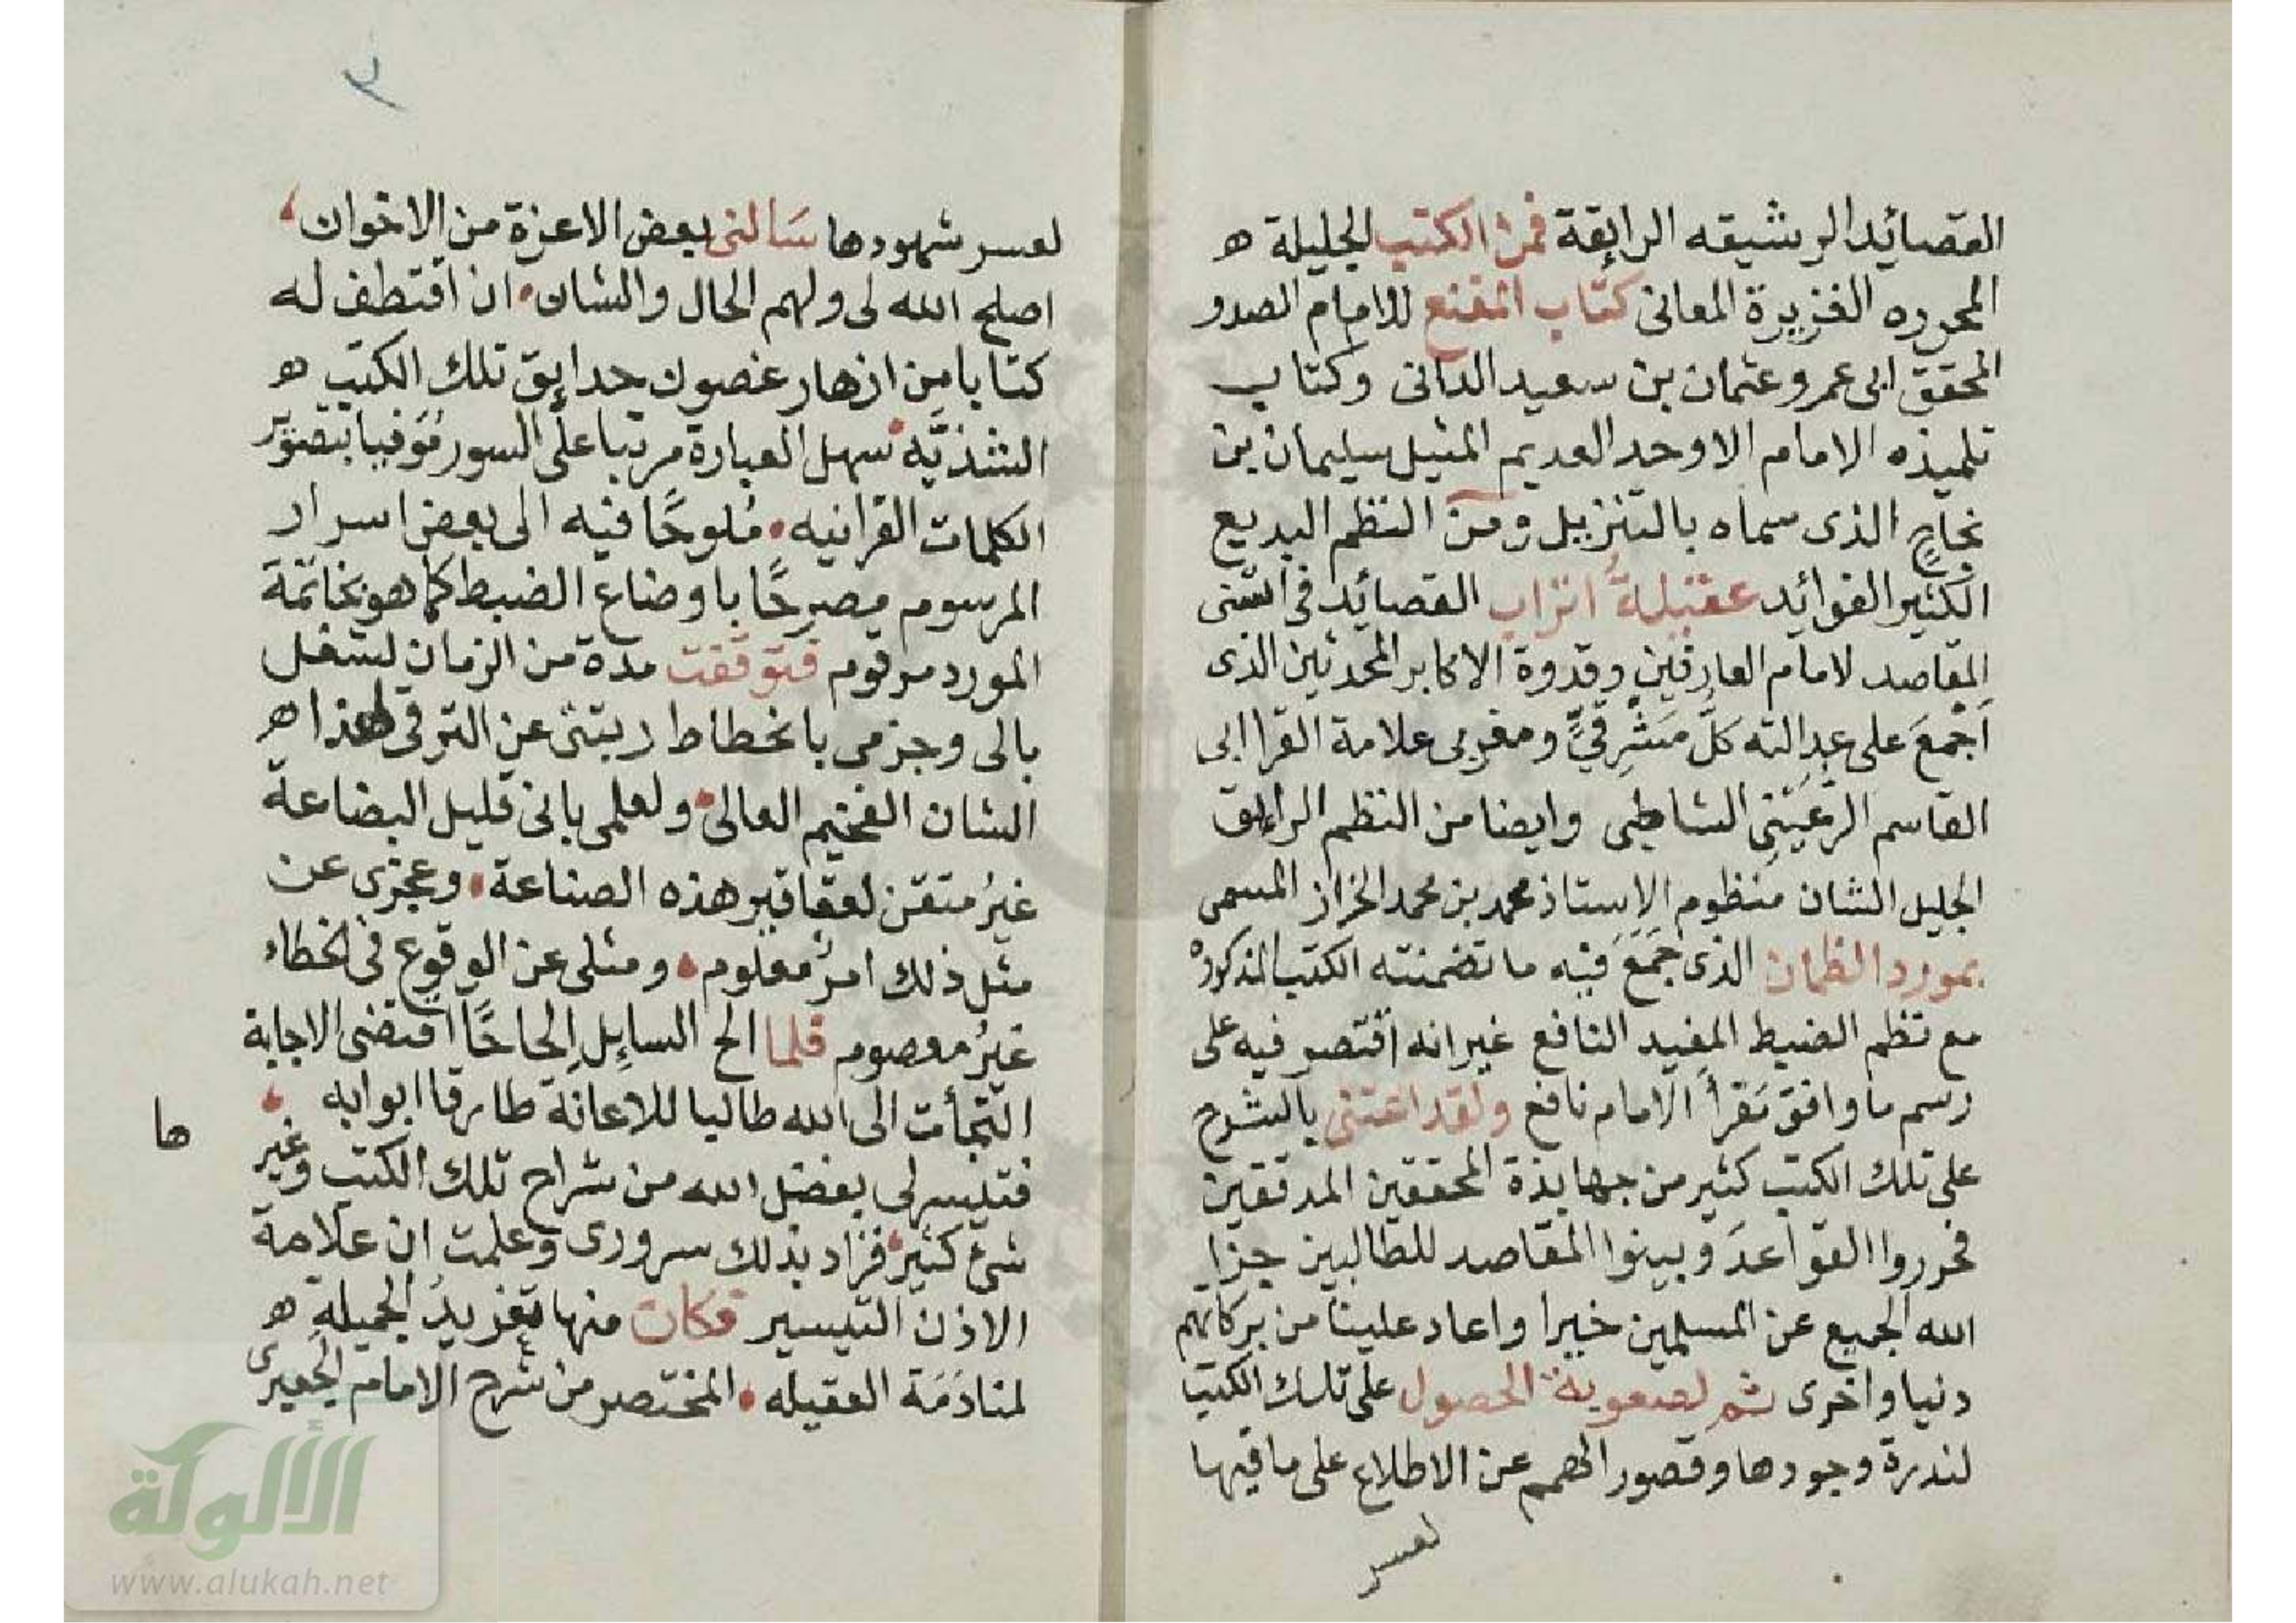 القصائد الرشيقه الرايقة فمن الكتب الجليلة ه
المحرره الغزيرة المعانى كتاب المقنع للامام الصدر
المحقق ابى عمرو عثمان بن سعيد الدانى وكتاب
تلميذه الامام الاوحد العديم المثيل سليمان بن
نجاح الذى سماه بالتنزيل ومن النظم البديع
الكثير الفوائد عقيلة اتراب القصائد فى اسنى
المقاصد لامام العارفين وقدوة الاكابر المحدثين الذى
اَجْمعَ على عدالته كلّ مَشْرِقيٍّ ومغربى علامة القرا ابى
القاسم الرُّعَيْنِى الشاطبى وايضا من النظم الرايق
الجليل الشان منظوم الاستاذ محمد بن محمد الخراز المسمى
بمورد الظمان الذى جَمَعَ فيه ما تضمنته الكتب المذكورة
مع نظم الضبط المفيد النافع غير انه اقتصر فيه على
رسم ما وافق مَقرأ الامام نافع ولقد اعتنى بالشرح
على تلك الكتب كثير من جهابذة المحققين المدققين
فحرروا القواعدَ وبينوا المقاصد للطالبين جزا
الله الجميع عن المسلمين خيرا واعاد علينا من بركاتهم
دنيا واخرى ثم لصعوبة الحصول على تلك الكتب
لندرة وجودها وقصور الهمم عن الاطلاع على ما فيها
لعسر
٣
لعسر شهودها سَالنى بعض الاعزة من الاخوان،
اصلح الله لى ولهم الحال والشان • ان اقتطف له
كتابا من ازهار غصون حدايق تلك الكتب ه
الشذيَّة • سهل العبارة مرتبا على السور مُوفيا بتصوير
الكلمات القرانيه • مُلوحًا فيه الى بعض اسرار
المرسوم مصرحًا باوضاع الضبط كما هو بخاتمة
المورد مرقوم فتوقفت مدة من الزمان لشغل
بالى وجزمى بانحطاط ربتتى عن الترقى لهذا ه
الشان الفخيم العالى • ولعلمى بانى قليل البضاعة
غيرُ متقن لعقاقير هذه الصناعة • وعجزى عن
مثل ذلك امرٌ معلوم • ومثلى عن الوقوع فى الخطاء
غيرُ معصوم فلما الح السايل اِلحاحًا اقتضى الاجابة
التجأت الى الله طالبا للاعانة طارقا ابوابه •
فتيسر لى بفضل الله من شراح تلك الكتب وغير
ها
شئ كثير • فزاد بذلك سرورى وعلمت ان علامة
الاذن التيسير فكان منها تغريدُ الجميلة ه
لمنادَمَة العقيله • المختصر من شرح الامام الجعبرى
الألوكة
www.alukah.net